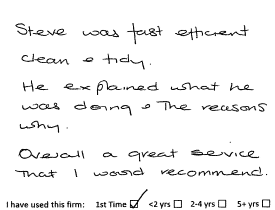 Steve was fast efficient
clean & tidy.
He explained what he
was doing & the reasons
why.
Overall a great service
that I would recommend.
I have used this firm: 1st Time ☑ <2 yrs ☐ 2-4 yrs ☐ 5+ yrs ☐